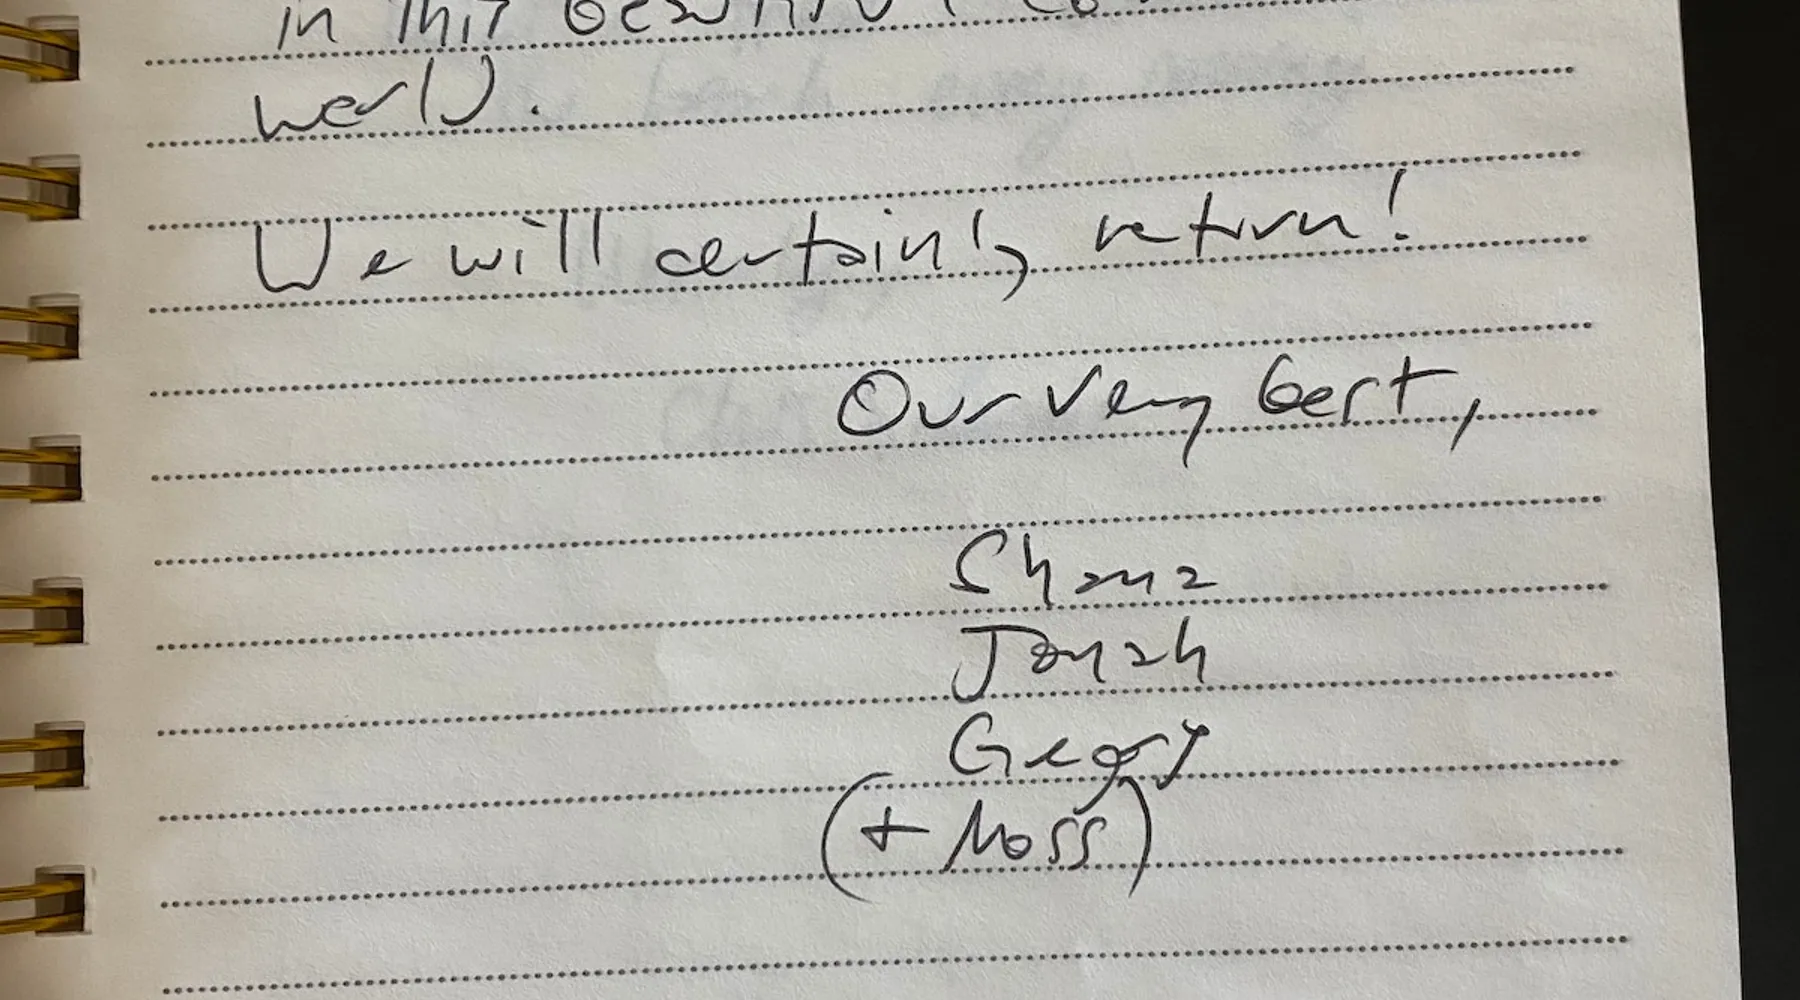 in this beautiful
world.
We will certainly return!
Our very best,
Shana
Jonah
Geary
(+ Moss)